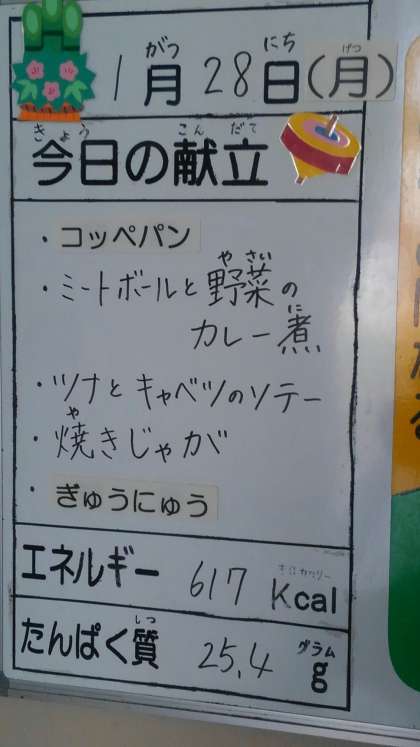 1月28日(月)
がつ にち げつ
今日の献立
きょう こん だて
・コッペパン
・ミートボールと野菜の
やさい
カレー煮
に
・ツナとキャベツのソテー
・焼きじゃが
や
・ぎゅうにゅう
エネルギー 617 Kcal
たんぱく質 25.4 g
しつ グラム